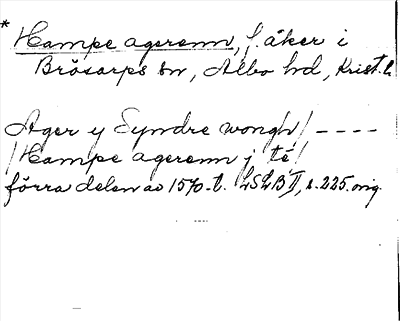 * Hampe agerenn, f. åker i
Brösarps sn, Albo hd, Krist. l.
Ager y Syndre wongh / ----
/ Hampe agerenn j té /
förra delen av 1570-t. LSLB II, s. 225. orig.